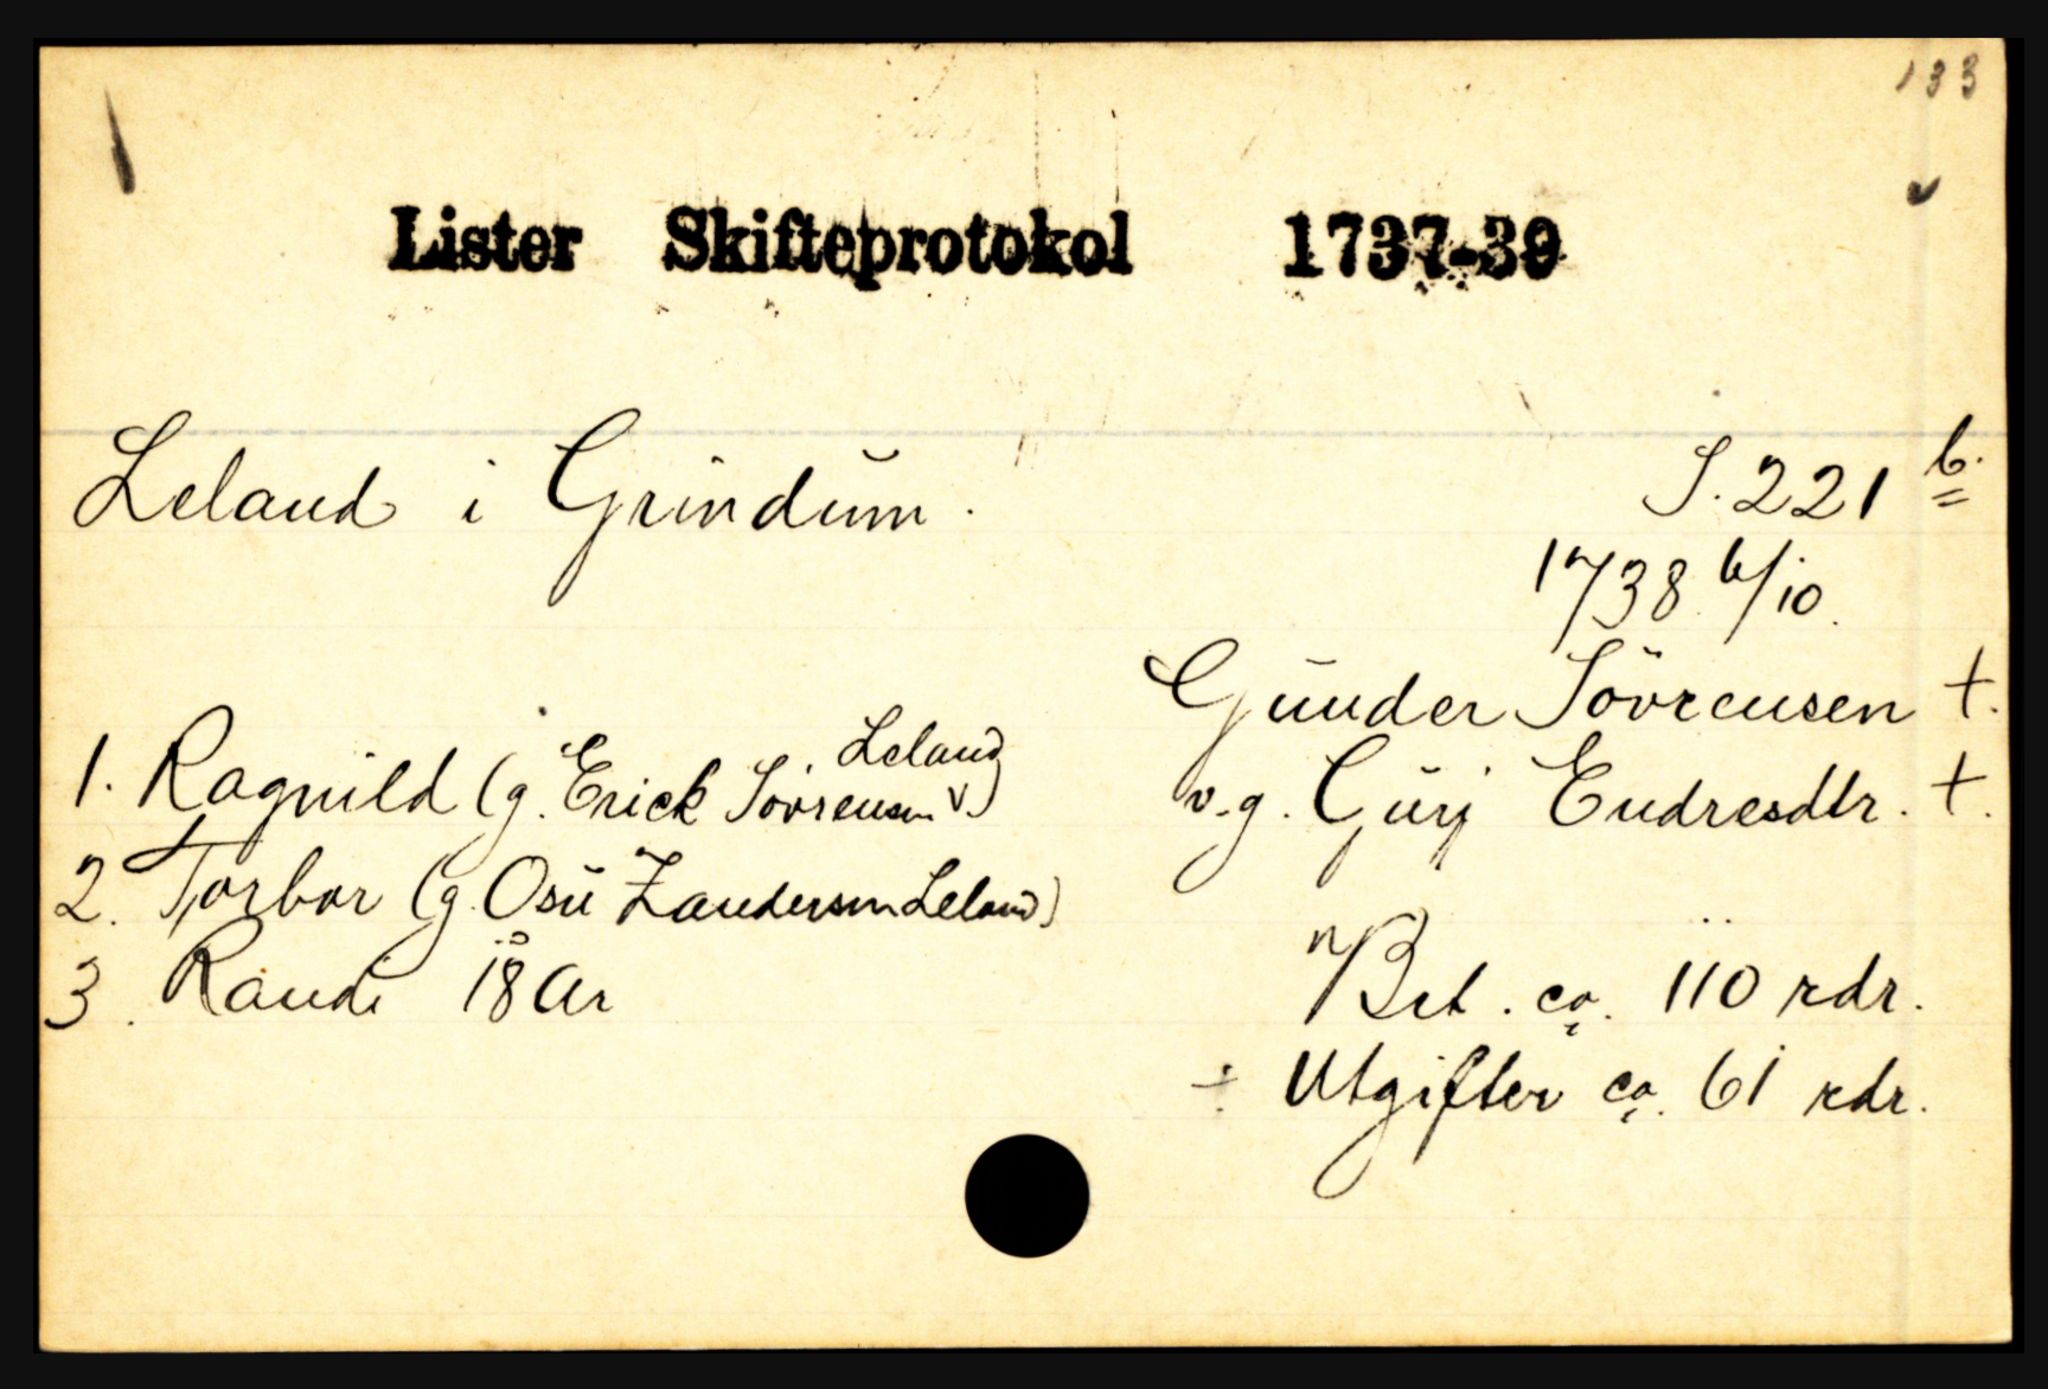 133
Lister Skifteprotokol 1737-39
Leland i Grindum. S. 221 b.
1738 6/10.
Gunder Sövrensen +.
v.g. Gurj Endresdtr. +.
1. Ragnild (g. Erick Sövrensen Leland)
2. Torbor (g. Osu Zandersen Leland)
3. Randi 18 år
Brt. ca. 110 rdr.
÷ Utgifter ca. 61 rdr.